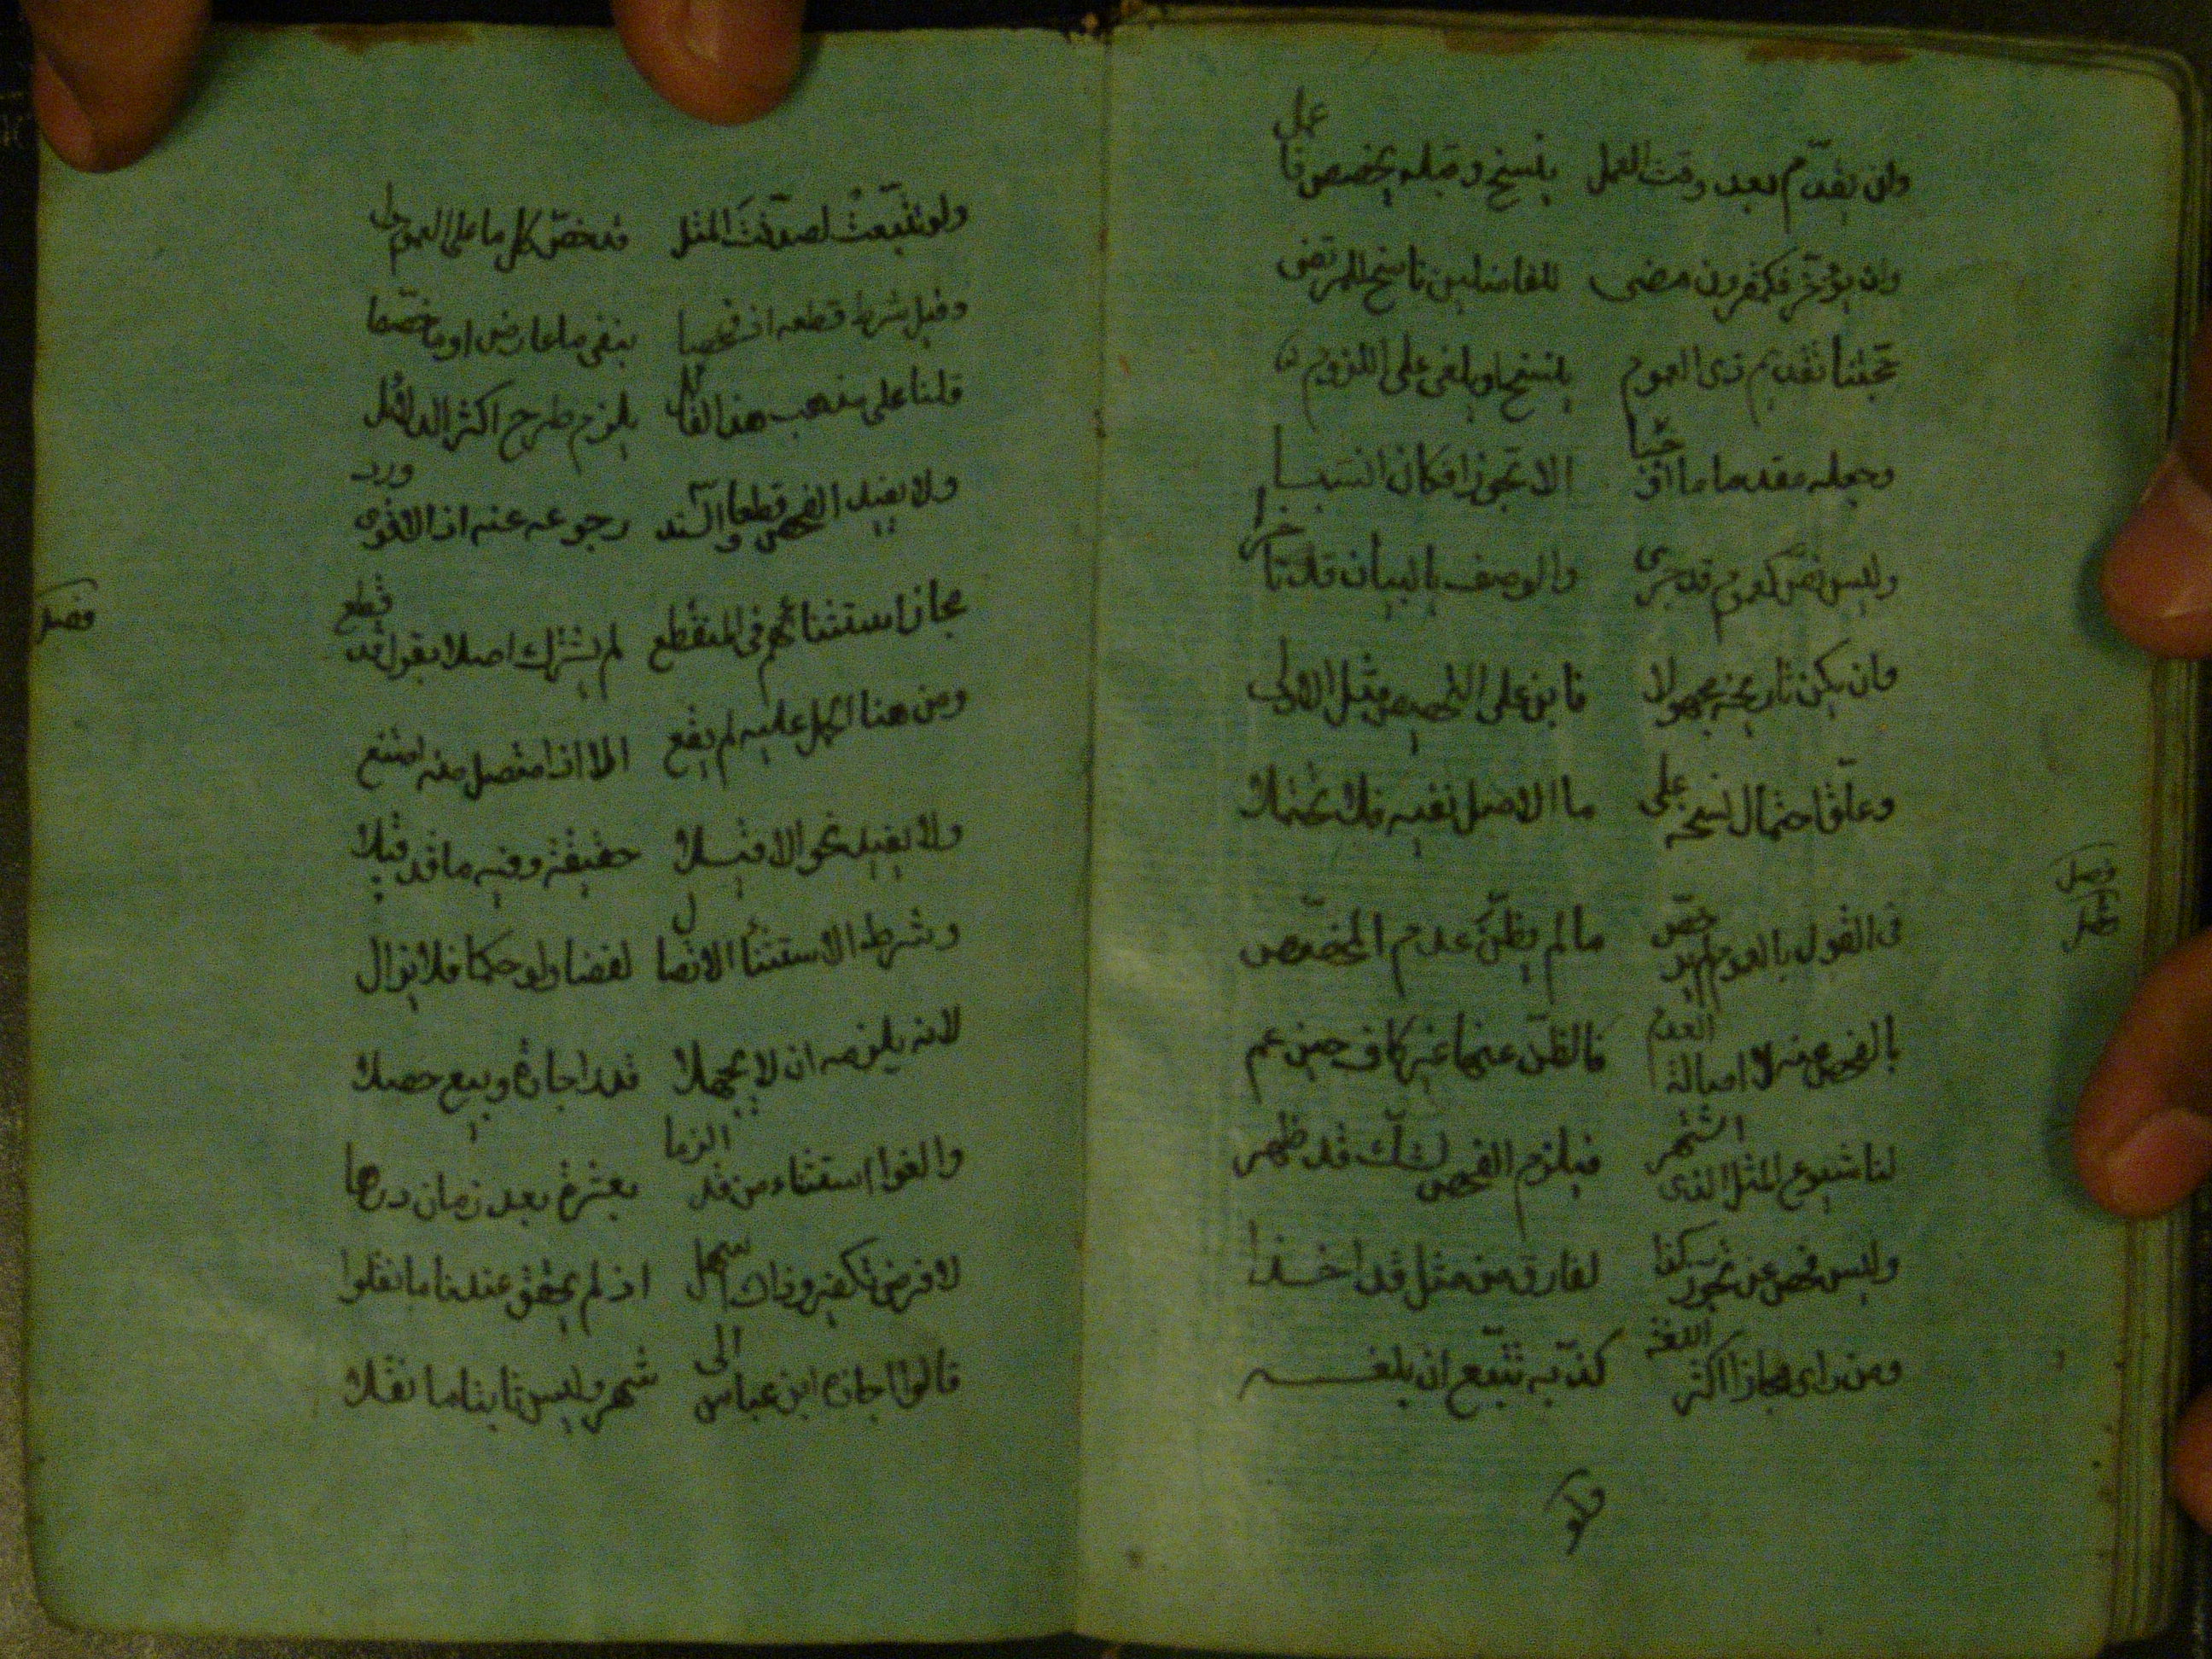 وان تقدم بعد وقت العمل ينسخ وقبله يخصص فا عمل
وان يؤخر فكمقرون مضى للفاضلين ناسخ للمرتضى
حجتنا تقديم ذى العموم ينسخ او يلغى على اللزوم
وجعله مقدما ما اوجبا الا تجوزا فكان انسبا
وليس نص كعموم قد جرى والوصف بالبيان قد تأخرا
وان يكن تاريخه مجهولا فابن على التخصيص مثل الاولى
وعلقا احتمال نسخه على ما الاصل نفيه فلن يحتملا
فصل
فى القول بالعموم لم يرخص ما لم يظن عدم المخصص
بالفحص عنه لا اصالة العدم فالظن عنها غير كاف حين عم
لنا شيوع المثل الذى اشتهر فيلزم الفحص لشك قد ظهر
وليس فحص عن تجوز كذا لفارق من مثل قد اخذا
ومن راى مجازا اكثر اللغه كذبه تتبع ان بلغه
ولو
ولو تتبعت لصدقت المثل قد خص كل ما على العموم دل
وقيل شرط قطعه اذ فحصا بنفى ما عارض او ما خصصا
قلنا على مذهب هذا القائل يلزم طرح اكثر الدلائل
ولا يفيد الفحص قطعا والسند رجوعه عنه اذا الاقوى ورد
فصل
مجاز استثنائهم فى المنقطع لم يشترك اصلا بقول قد قطع
ومن هنا الحمل عليه لم يقع الا اذا متصل منه امتنع
ولا يفيد نحو الا قبلا حقيقة وفيه ما قد قيلا
وشرط الاستثنا الاتصال لفضا ولو حكما فلا يزال
لانه يلزمه ان لا يجهلا قدر اجارة وبيع حصلا
والغوا استثناء من قد الزما بعشرة بعد زمان درهما
لا فرض تكفير وذاك اسهل اذ لم يحقق عندنا ما نقلوا
قالوا اجازه ابن عباس الى شهر وليس ثابتا ما نقلا